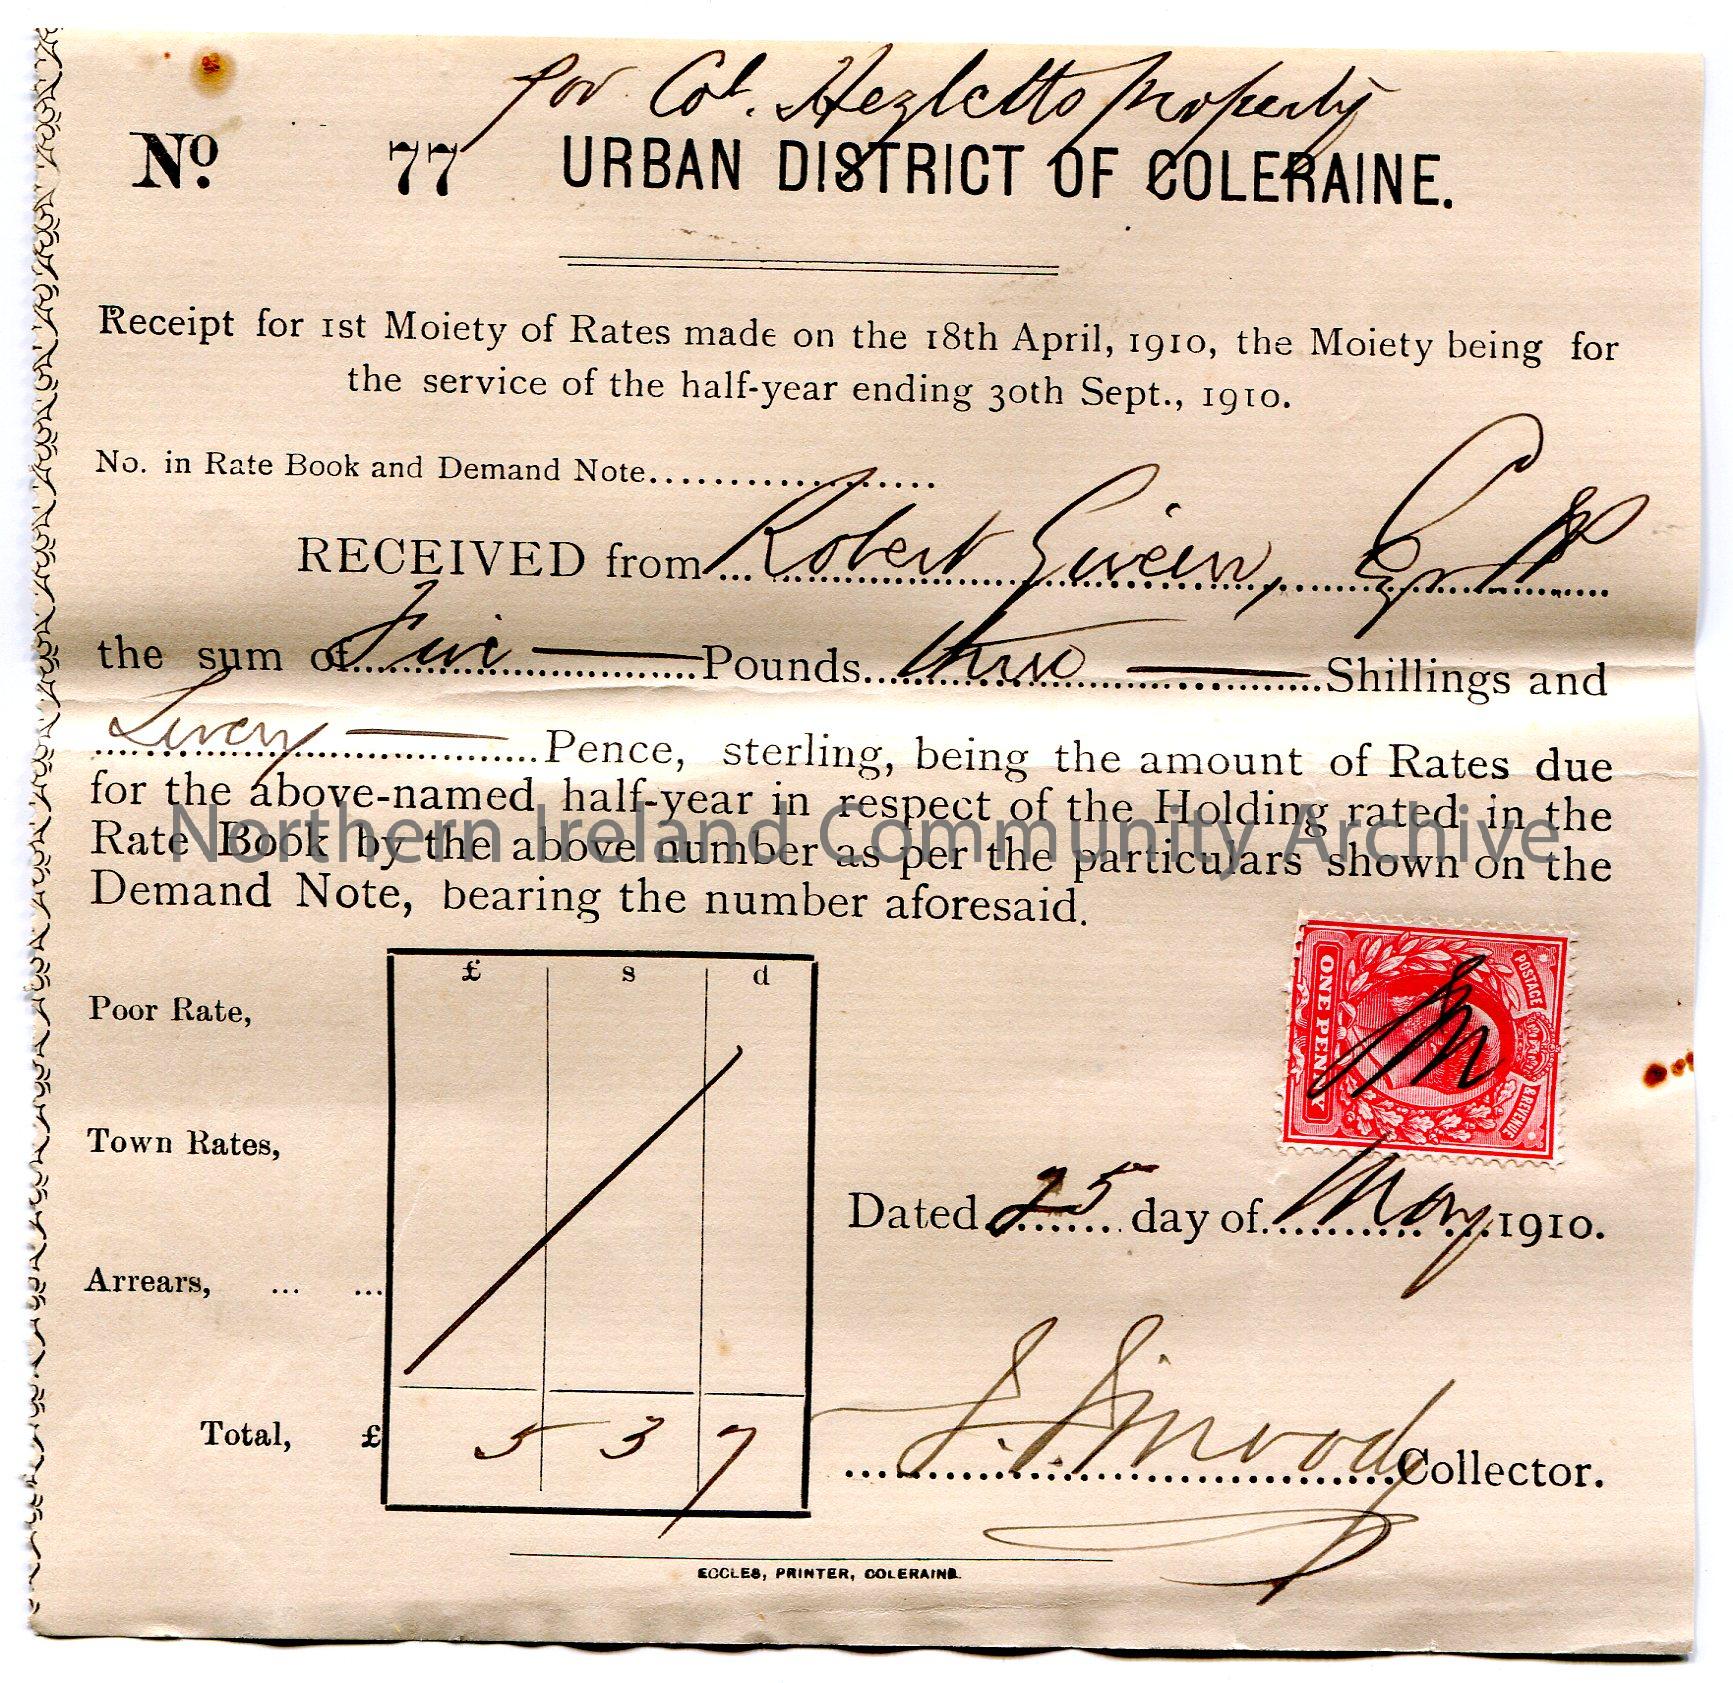 for Col. Hezletts Property
No. 77 URBAN DISTRICT OF COLERAINE.
Receipt for 1st Moiety of Rates made on the 18th April, 1910, the Moiety being for
the service of the half-year ending 30th Sept., 1910.
No. in Rate Book and Demand Note...................
RECEIVED from Robert Given, Esq
the sum of Five Pounds three Shillings and
Seven Pence, sterling, being the amount of Rates due
for the above-named half-year in respect of the Holding rated in the
Northern Ireland Community Archive
Rate Book by the above number as per the particulars shown on the
Demand Note, bearing the number aforesaid.
£ s d
Poor Rate,
POSTAGE & REVENUE
ONE PENNY
Town Rates,
Dated 25 day of May 1910.
Arrears, ... ...
Total, £ 5 3 7
Collector.
ECCLES, PRINTER, COLERAINE.